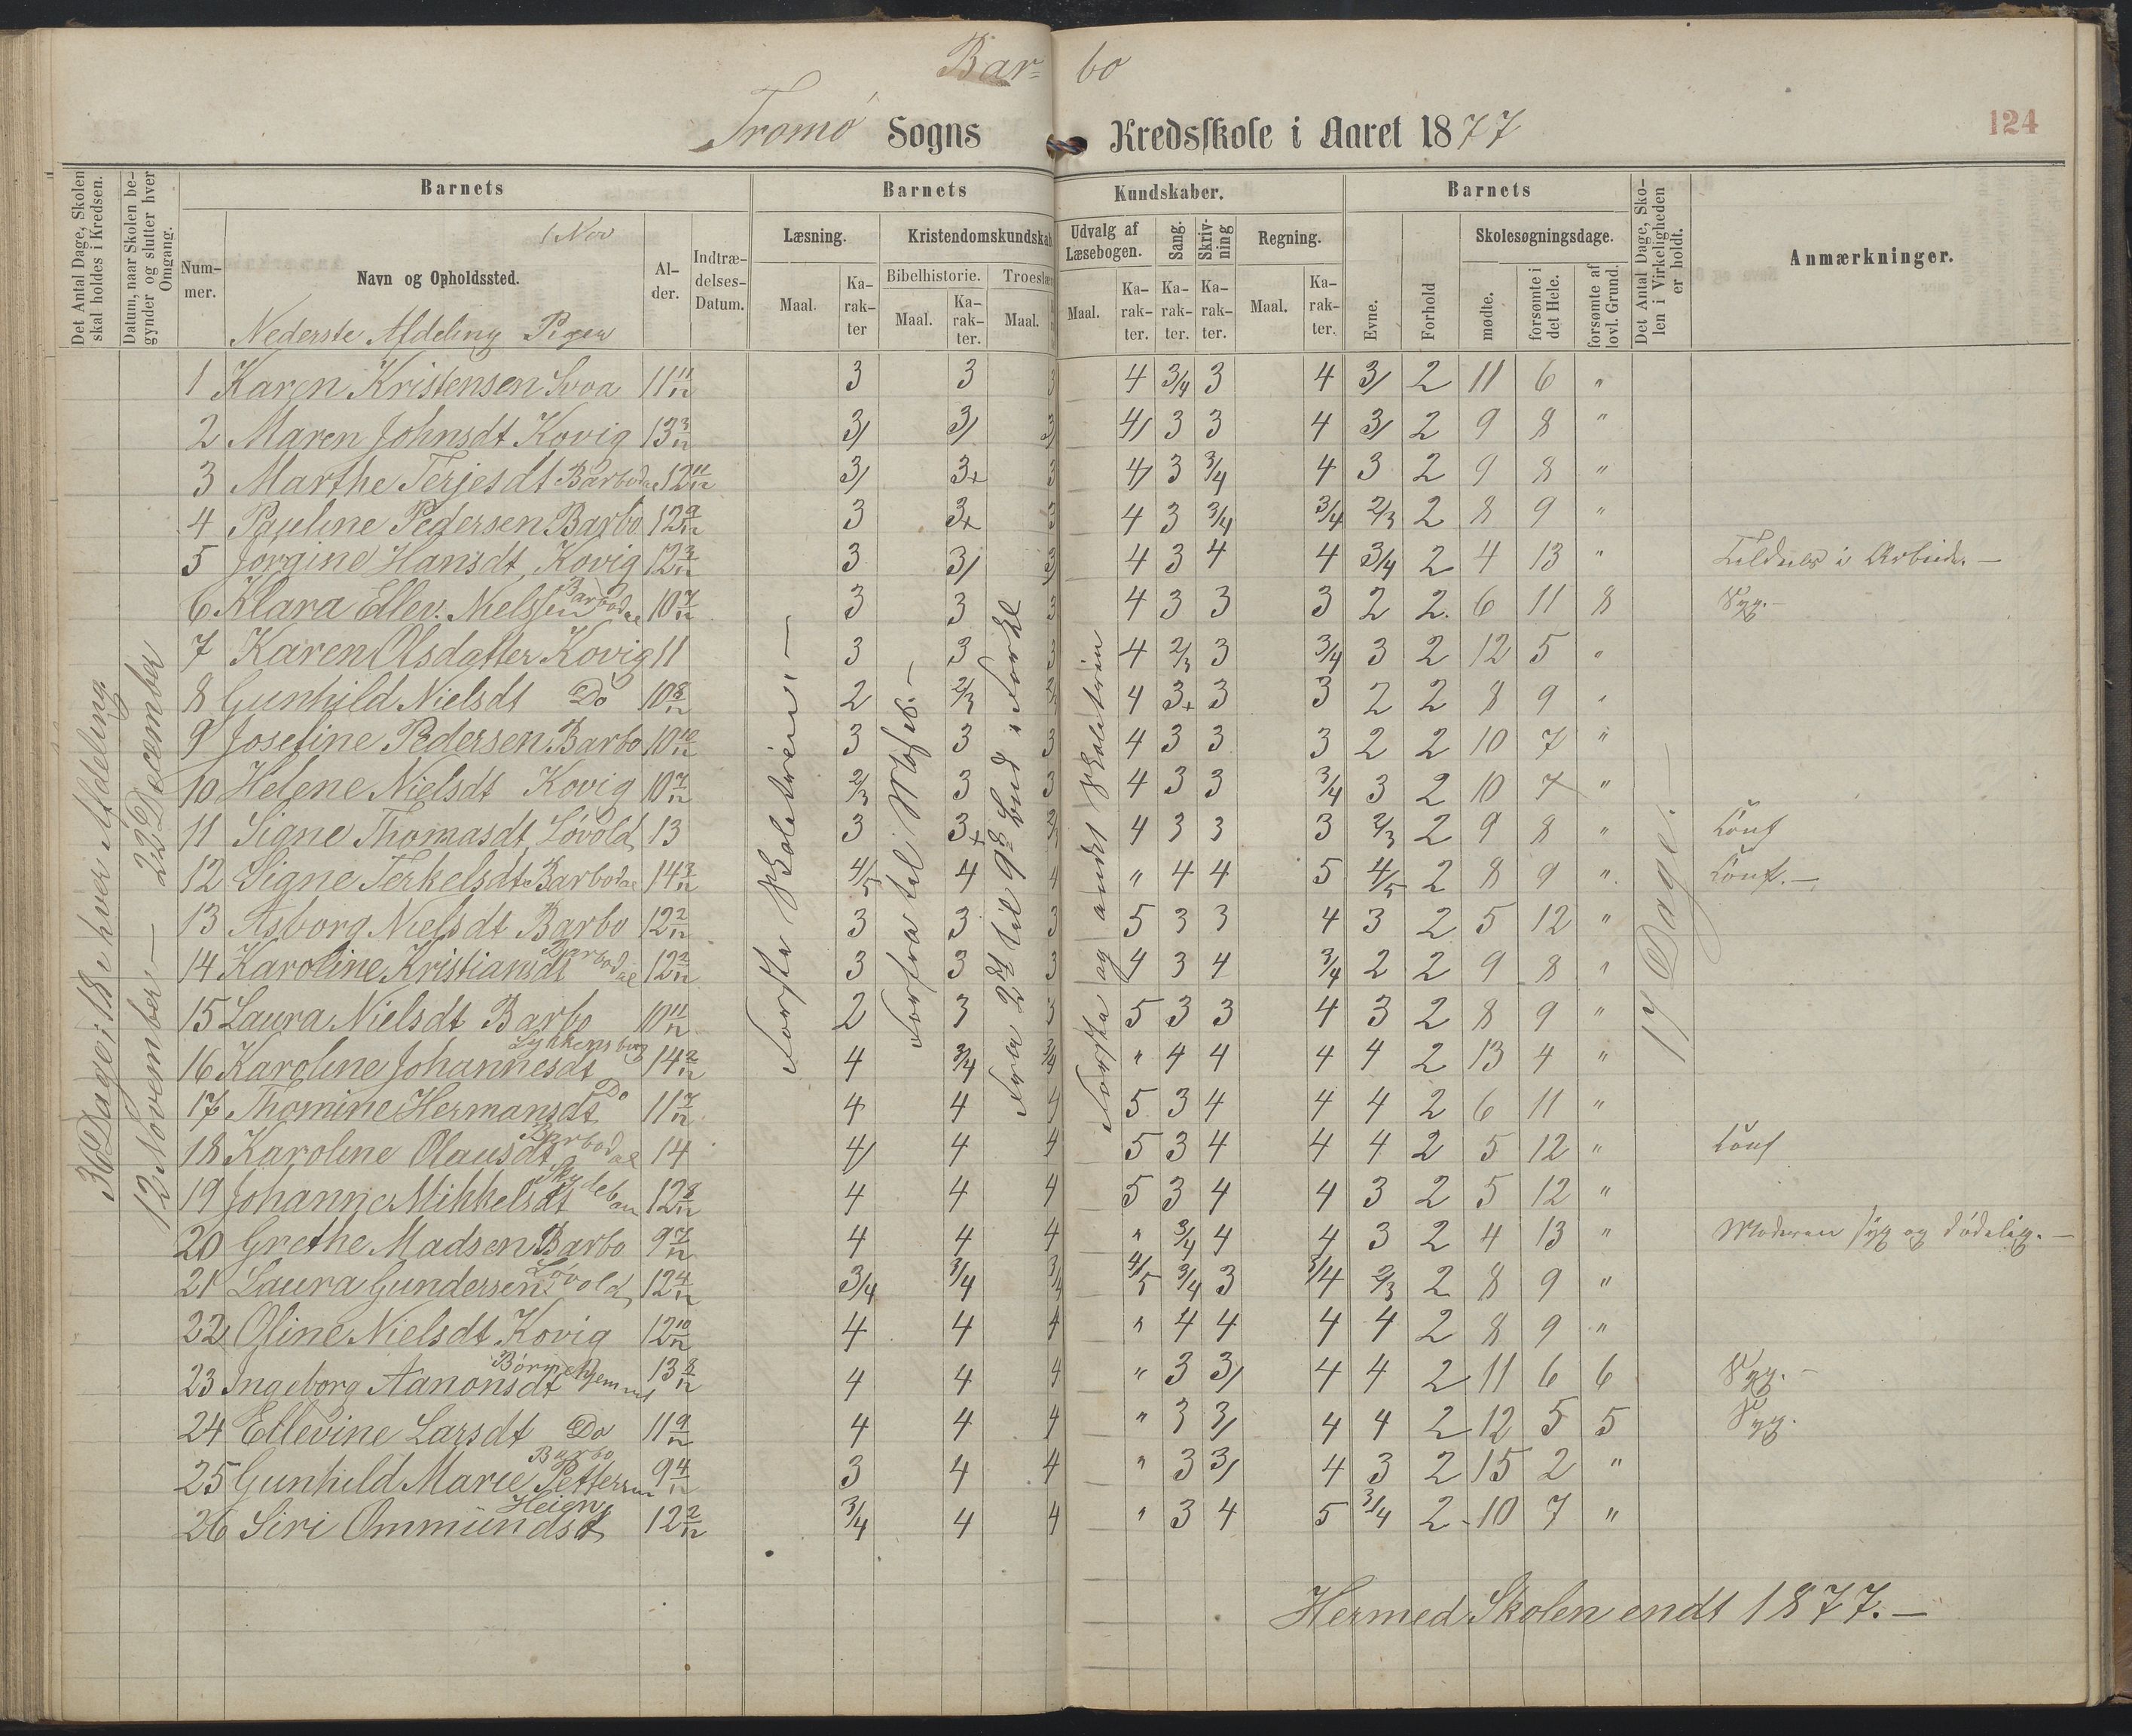 Bar= bo
Tromø Sogns Kredsskole i Aaret 1877
124
Det Antal Dage, Skolen skal holdes i Kredsen.
Datum, naar Skolen begynder og slutter hver Omgang.
Barnets
Nummer.
1 Nov
Navn og Opholdssted.
Nederste Afdeling Piger
Alder.
Indtrædelses-Datum.
Barnets Kundskaber.
Læsning.
Maal.
Karakter
Kristendomskundskab
Bibelhistorie.
Maal.
Karakter.
Troeslære
Maal.
Udvalg af Læsebogen.
Maal.
Karakter.
Sang.
Karakter.
Skrivning
Karakter.
Regning.
Maal.
Karakter.
Barnets
Evne.
Forhold
Skolesøgningsdage.
mødte.
forsømte i det Hele.
forsømte af lovl. Grund.
Det Antal Dage, Skolen i Virkeligheden er holdt.
Anmærkninger.
36 Dage; 18 i hver Afdeling.
12 November — 22 December
Første Skoletrin. —
Forfra til
Fra 2det til 9de Bud
Første og andet Skoletrin
17 Dage. —
1 Karen Kristensen Svoa 11 11/12 3 3 3 4 3/4 3 4 3/ 2 11 6 "
2 Maren Johnsdt Kovig 13 3/12 3/ 3/ 3/ 4/ 3 3 4 3/ 2 9 8 "
3 Marthe Terjesdt Barbodal 12 11/12 3/ 3+ 3 4/ 3 3/4 4 3 2 9 8 "
4 Pauline Pedersen Barbo 12 9/12 3 3+ 3 4 3 3/4 3/4 2/3 2 8 9 "
5 Jorgine Hansdt, Kovig 12 3/12 3 3/ 3/ 4 3 4 4 3/4 2 4 13 " i Arbeide. —
6 Klara Ellev. Nielssen Barbodal 10 7/12 3 3 3 4 3 3 3 2 2. 6 11 8 Syg. —
7 Karen Olsdatter Kovig 11 3 3 3 4 2/3 3 3/4 3 2 12 5 "
8 Gunhild Nielsdt Do 10 8/12 2 2/3 2/3 4 3+ 3 3 2 2 8 9 "
9 Josefine Pedersen Barbo 10 10/12 3 3 3 4 3 3 3 2 2 10 7 "
10 Helene Nielsdt Kovig 10 7/12 2/3 3 3 4 3 3 3/4 3 2 10 7 "
11 Signe Thomasdt, Løvold, 13 3 3+ 2/3 4 3 3 3 2/3 2 9 8 " Konf
12 Signe Terkelsdt Barbodal 14 3/12 4/5 4 4 " 4 4 5 4/5 2 8 9 " Konf. —
13 Asborg Nielsdt Barbo 12 2/12 3 3 3 5 3 3 4 3 2 5 12 "
14 Karoline Kristiansdt Barbodal 12 2/12 3 3 3 4 3 4 3/4 2 2 9 8 "
15 Laura Nielsdt Barbo 10 11/12 2 3 3 5 3 3 4 3 2 8 9 "
16 Karoline Johannesdt Lykkensborg 14 2/12 4 3/4 3/4 " 4 4 4 4 2 13 4 "
17 Thomine Hermansdt Do 11 7/12 4 4 4 5 3 4 4 4 2 6 11 "
18 Karoline Olausdt Barbodal 14 4/ 4 4 5 3 4 4 4 2 5 12 " Konf
19 Johanne Mikkelsdt Skydeban 12 8/12 4 4 4 5 3 4 4 3 2 5 12 "
20 Grethe Madsen Barbo 9 7/12 4 4 4 " 3/4 4 4 3 2 4 13 " Moderen syg og dødelig. —
21 Laura Gundersen Løvold, 12 4/12 3/4 3/4 3/4 4/5 3/4 3 3/4 2/3 2 8 9 "
22 Oline Nielsdt Kovig 12 10/12 4 4 4 " 4 4 4 4 2 8 9 "
23 Ingeborg Aanonsdt Børnehjemmet 13 8/12 4 4 4 " 3 3/ 4 4 2 11 6 6 Syg. —
24 Ellevine Larsdt Do 11 9/12 4 4 4 " 3 3/ 4 4 2 12 5 5 Syg.
25 Gunhild Marie Pettersen Barbo 9 4/12 3 4 4 " 3 3/ 4 3 2 15 2 "
26 Siri Ommundsdt Heien 12 2/12 3/4 4 4 " 3 4 5 3/4 2 10 7 "
Hermed Skolen endt 1877. —